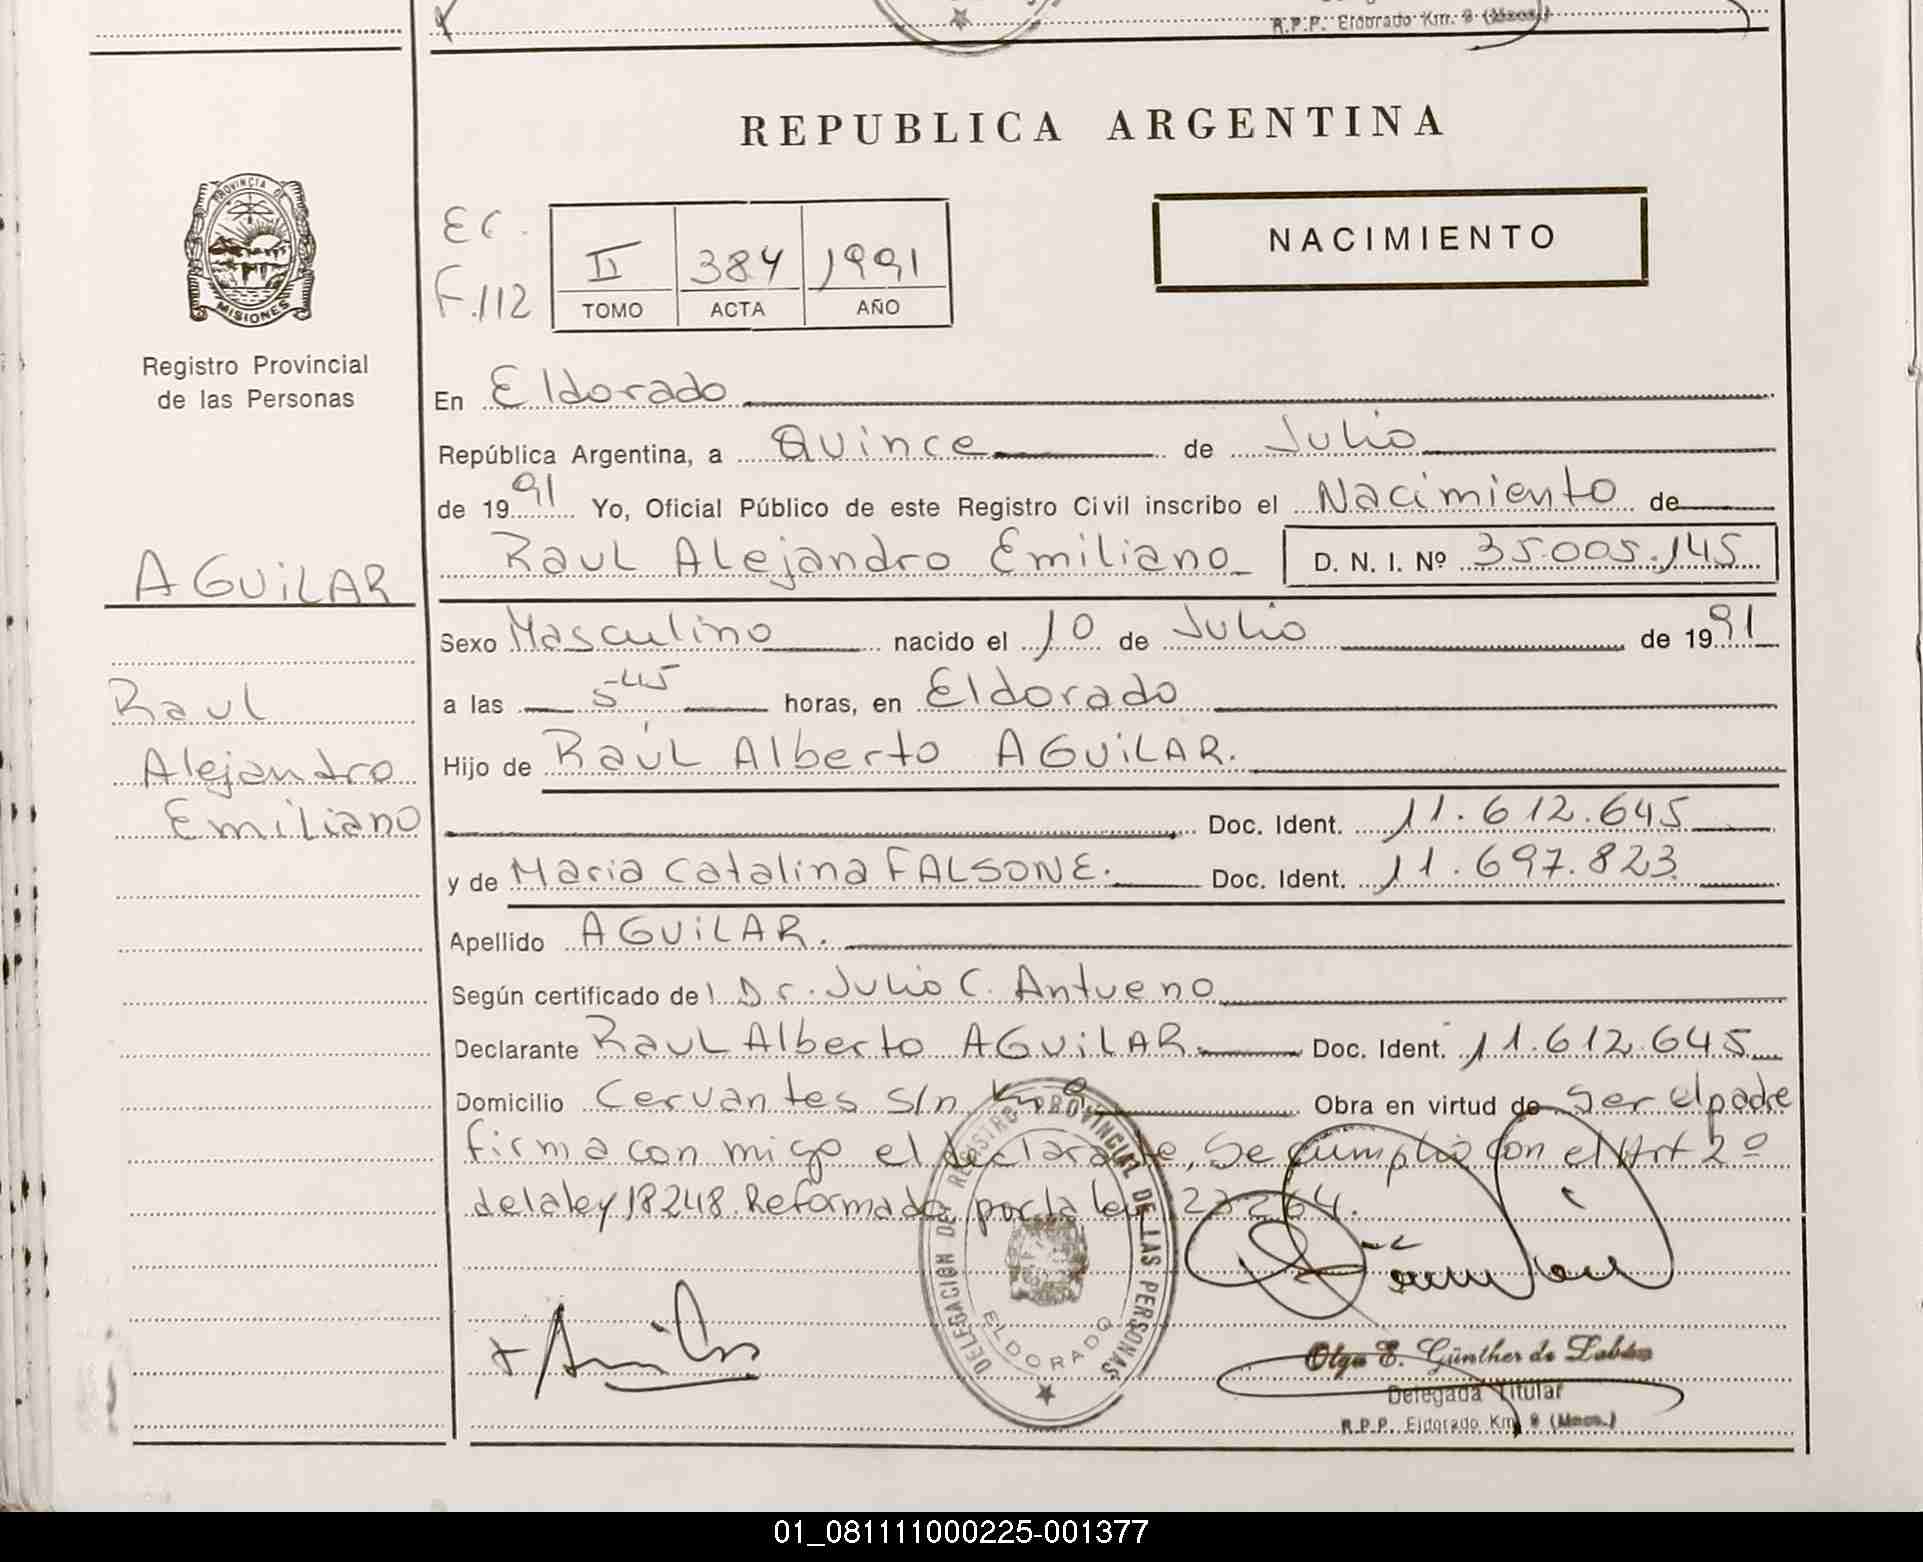 R.P.P. Eldorado Km. 9 (Mnes.)
REPUBLICA ARGENTINA
PROVINCIA DE
MISIONES
Registro Provincial
de las Personas
NACIMIENTO
EC.
F.112
II 384 1991
TOMO ACTA AÑO
En Eldorado
República Argentina, a Quince de Julio
de 1991 Yo, Oficial Público de este Registro Civil inscribo el Nacimiento de
Raul Alejandro Emiliano D. N. I. Nº 35.005.145
AGUiLAR
Raul
Alejandro
Emiliano
Sexo Masculino nacido el 10 de Julio de 1991
a las 5 45 horas, en Eldorado
Hijo de Raúl Alberto AGUiLAR.
Doc. Ident. 11.612.645
y de Maria Catalina FALSONE. Doc. Ident. 11.697.823
Apellido AGUiLAR.
Según certificado del Dr. Julio C. Antueno
Declarante Raul Alberto AGUiLAR. Doc. Ident. 11.612.645
Domicilio Cervantes s/n Km 9 Obra en virtud de ser el padre
firma con migo el declarante, Se cumplio con el Art 2º
de la ley 18248. Reformado por la ley 23264.
DELEGACION DEL REGISTRO PROVINCIAL DE LAS PERSONAS
ELDORADO
Olga E. Günther de
Delegada Titular
R.P.P. Eldorado Km. 9 (Mnes.)
01_081111000225-001377